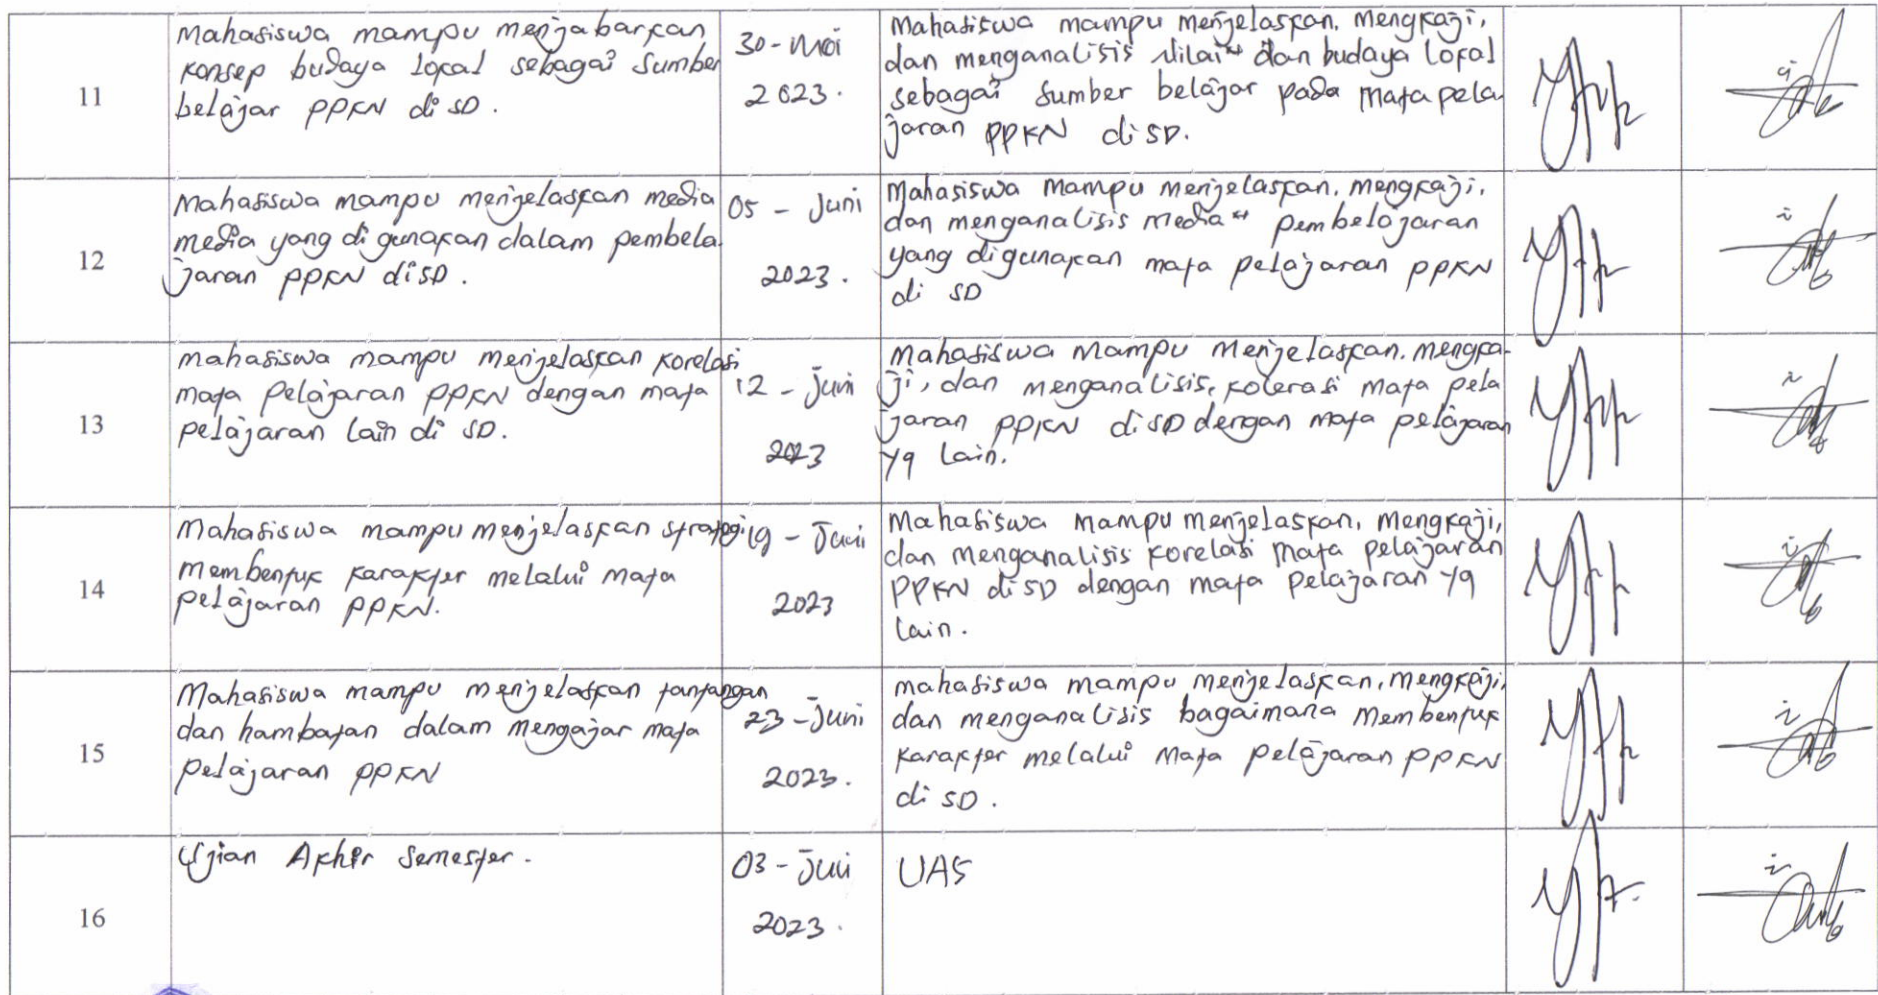 11
Mahasiswa mampu menjabarkan
konsep budaya lokal sebagai sumber
belajar PPKN di SD.
30 - Mei
2023.
Mahasiswa mampu menjelaskan, mengkaji,
dan menganalisis Nilai" dan budaya lokal
sebagai sumber belajar pada mata pela
jaran PPKN di SD.
12
Mahasiswa mampu menjelaskan media
media yang di gunakan dalam pembela
jaran PPKN di SD.
05 - Juni
2023.
Mahasiswa mampu menjelaskan, mengkaji,
dan menganalisis media" pembelajaran
yang digunakan mata pelajaran PPKN
di SD
13
Mahasiswa mampu menjelaskan korelasi
mata pelajaran PPKN dengan mata
pelajaran lain di SD.
12 - Juni
2023
Mahasiswa mampu menjelaskan, mengka-
ji, dan menganalisis, kolerasi mata pela
jaran PPKN di SD dengan mata pelajaran
yg lain.
14
Mahasiswa mampu menjelaskan strategi
membentuk karakter melalui mata
pelajaran PPKN.
19 - Juni
2023
Mahasiswa mampu menjelaskan, mengkaji,
dan menganalisis korelasi mata pelajaran
PPKN di SD dengan mata pelajaran yg
lain.
15
Mahasiswa mampu menjelaskan tantangan
dan hambatan dalam mengajar mata
pelajaran PPKN
23 - Juni
2023.
Mahasiswa mampu menjelaskan, mengkaji,
dan menganalisis bagaimana membentuk
karakter melalui mata pelajaran PPKN
di SD.
16
Ujian Akhir Semester.
03 - Juli
2023.
UAS